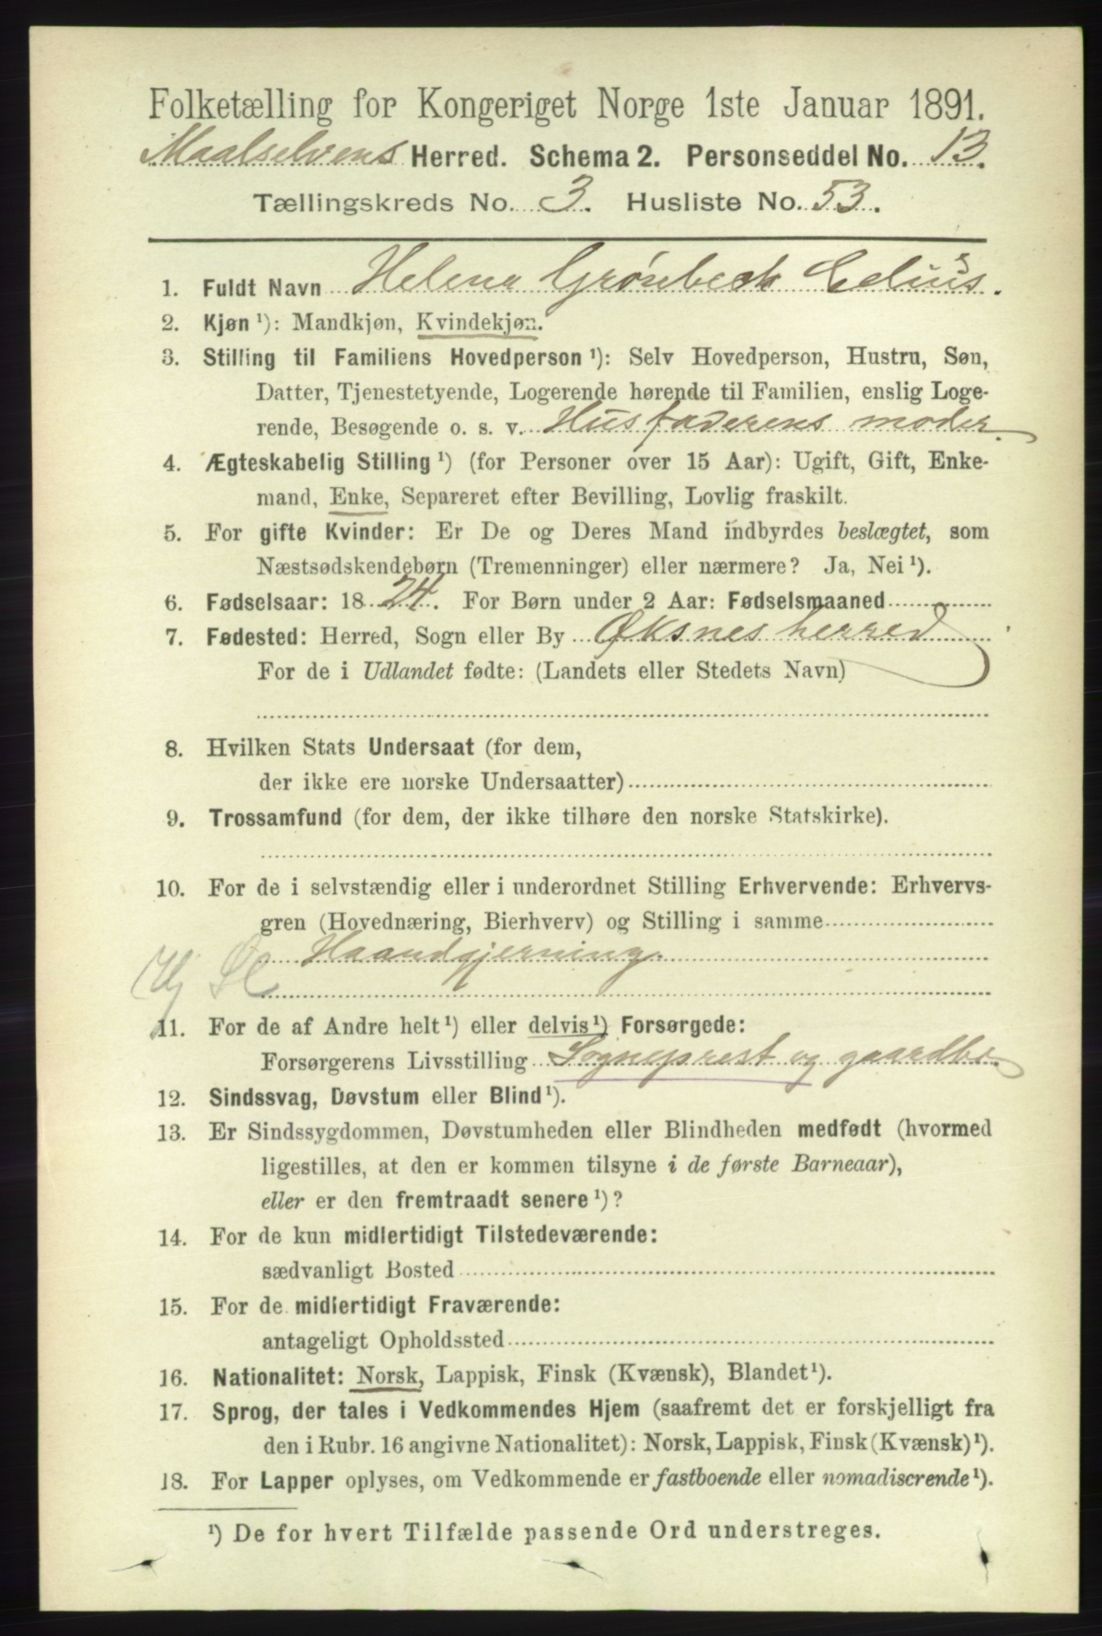 Folketælling for Kongeriget Norge 1ste Januar 1891.
Maalselvens Herred. Schema 2. Personseddel No. 13.
Tællingskreds No. 3. Husliste No. 53.
1. Fuldt Navn Helena Grönbech Celius.
2. Kjøn ¹): Mandkjøn, Kvindekjøn.
3. Stilling til Familiens Hovedperson ¹): Selv Hovedperson, Hustru, Søn,
Datter, Tjenestetyende, Logerende hørende til Familien, enslig Loge-
rende, Besøgende o. s. v. Husfaderens moder.
4. Ægteskabelig Stilling ¹) (for Personer over 15 Aar): Ugift, Gift, Enke-
mand, Enke, Separeret efter Bevilling, Lovlig fraskilt.
5. For gifte Kvinder: Er De og Deres Mand indbyrdes beslægtet, som
Næstsødskendebørn (Tremenninger) eller nærmere? Ja, Nei ¹).
6. Fødselsaar: 18 24. For Børn under 2 Aar: Fødselsmaaned
7. Fødested: Herred, Sogn eller By Øksnes herred
For de i Udlandet fødte: (Landets eller Stedets Navn)
8. Hvilken Stats Undersaat (for dem,
der ikke ere norske Undersaatter)
9. Trossamfund (for dem, der ikke tilhøre den norske Statskirke).
10. For de i selvstændig eller i underordnet Stilling Erhvervende: Erhvervs-
gren (Hovednæring, Bierhverv) og Stilling i samme
Haandgjerning.
11. For de af Andre helt ¹) eller delvis ¹) Forsørgede:
Forsørgerens Livsstilling Sogneprest og gaardbr.
12. Sindssvag, Døvstum eller Blind ¹).
13. Er Sindssygdommen, Døvstumheden eller Blindheden medfødt (hvormed
ligestilles, at den er kommen tilsyne i de første Barneaar),
eller er den fremtraadt senere ¹)?
14. For de kun midlertidigt Tilstedeværende:
sædvanligt Bosted
15. For de midlertidigt Fraværende:
antageligt Opholdssted
16. Nationalitet: Norsk, Lappisk, Finsk (Kvænsk), Blandet ¹).
17. Sprog, der tales i Vedkommendes Hjem (saafremt det er forskjelligt fra
den i Rubr. 16 angivne Nationalitet): Norsk, Lappisk, Finsk (Kvænsk) ¹).
18. For Lapper oplyses, om Vedkommende er fastboende eller nomadiserende ¹).
¹) De for hvert Tilfælde passende Ord understreges.